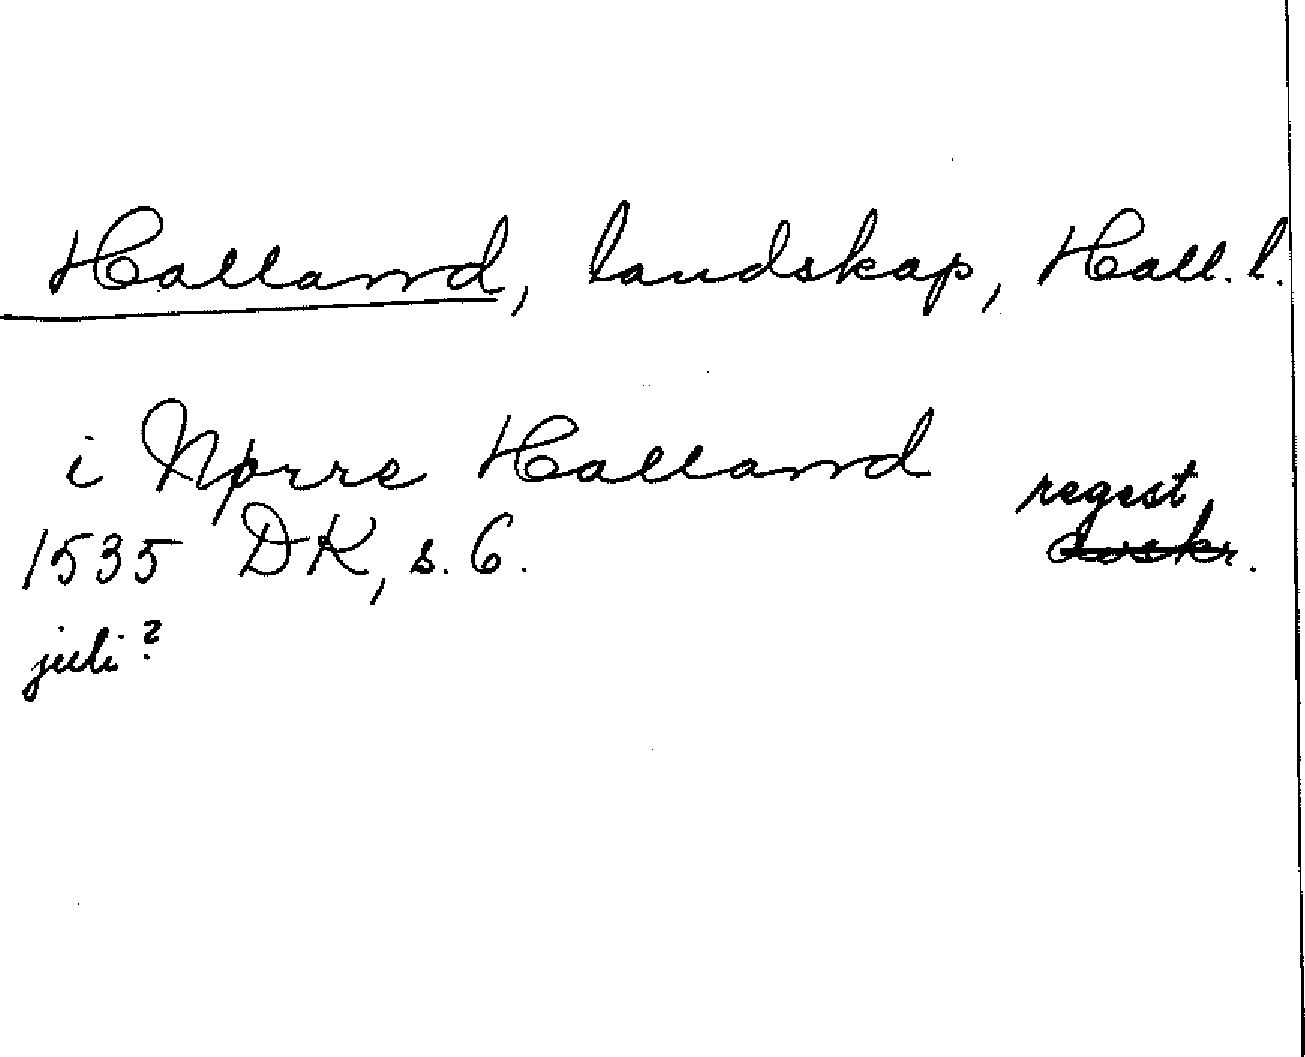 Halland, landskap, Hall. l.
i Nørre Halland
regest
1535 DK, s. 6.
juli?